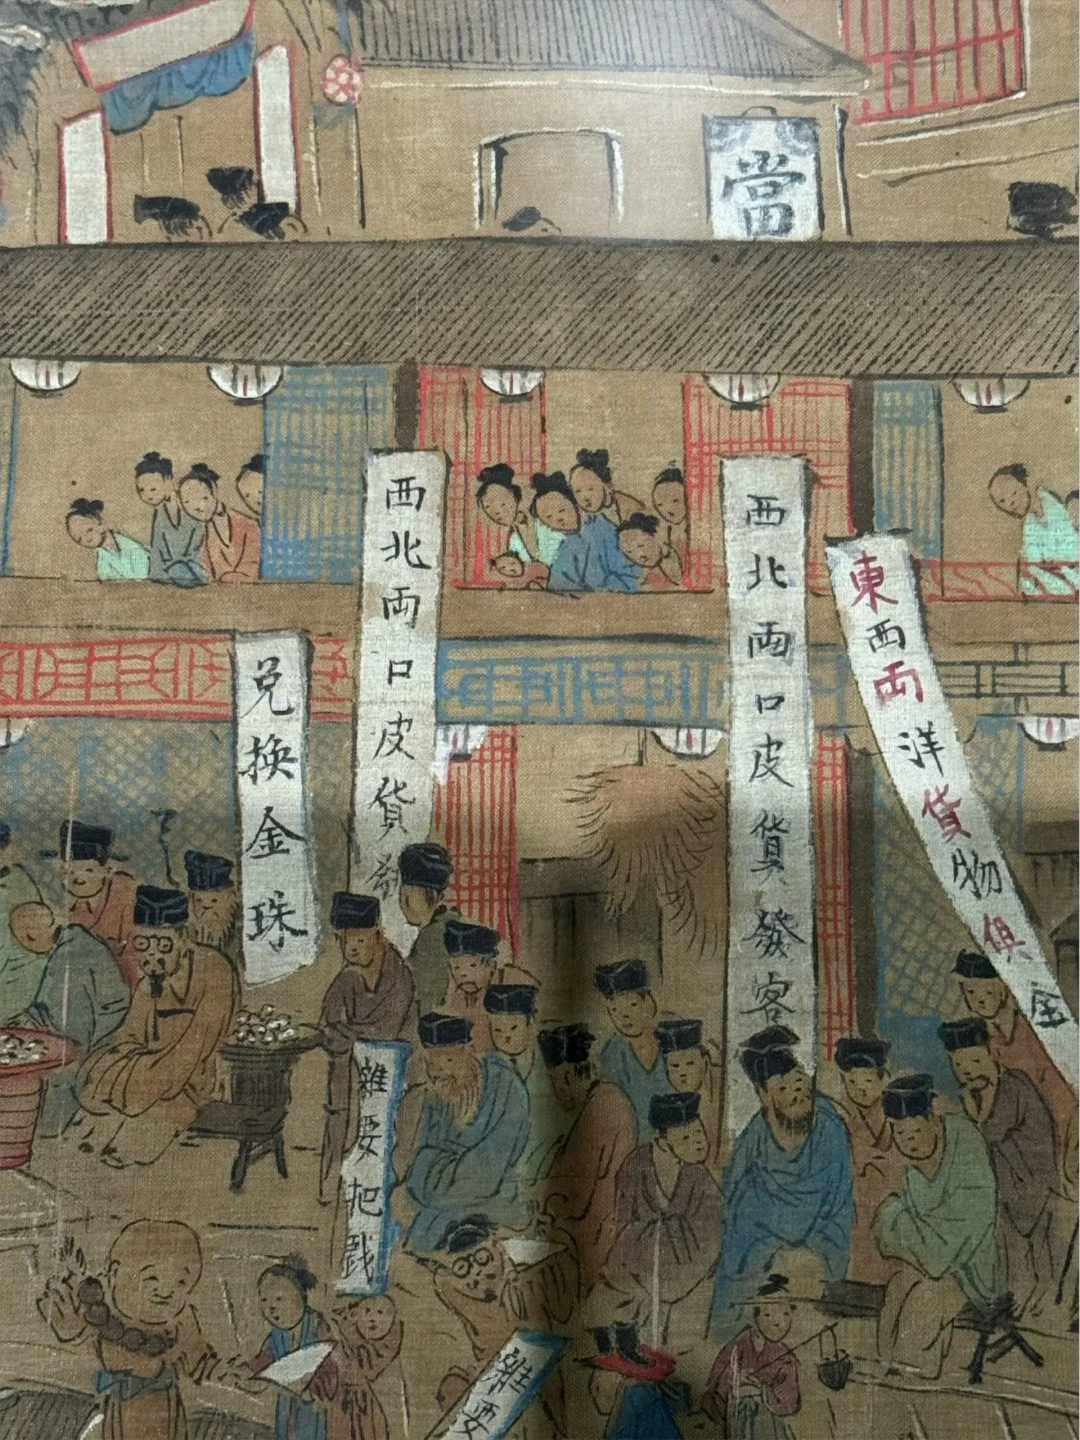 當
東西両洋貨物俱全
西北両口皮貨發客
西北両口皮貨發
兑換金珠
雜耍把戲
雜耍